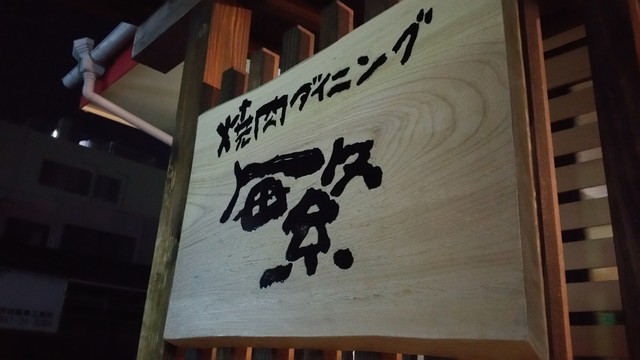 焼肉ダイニング
繁